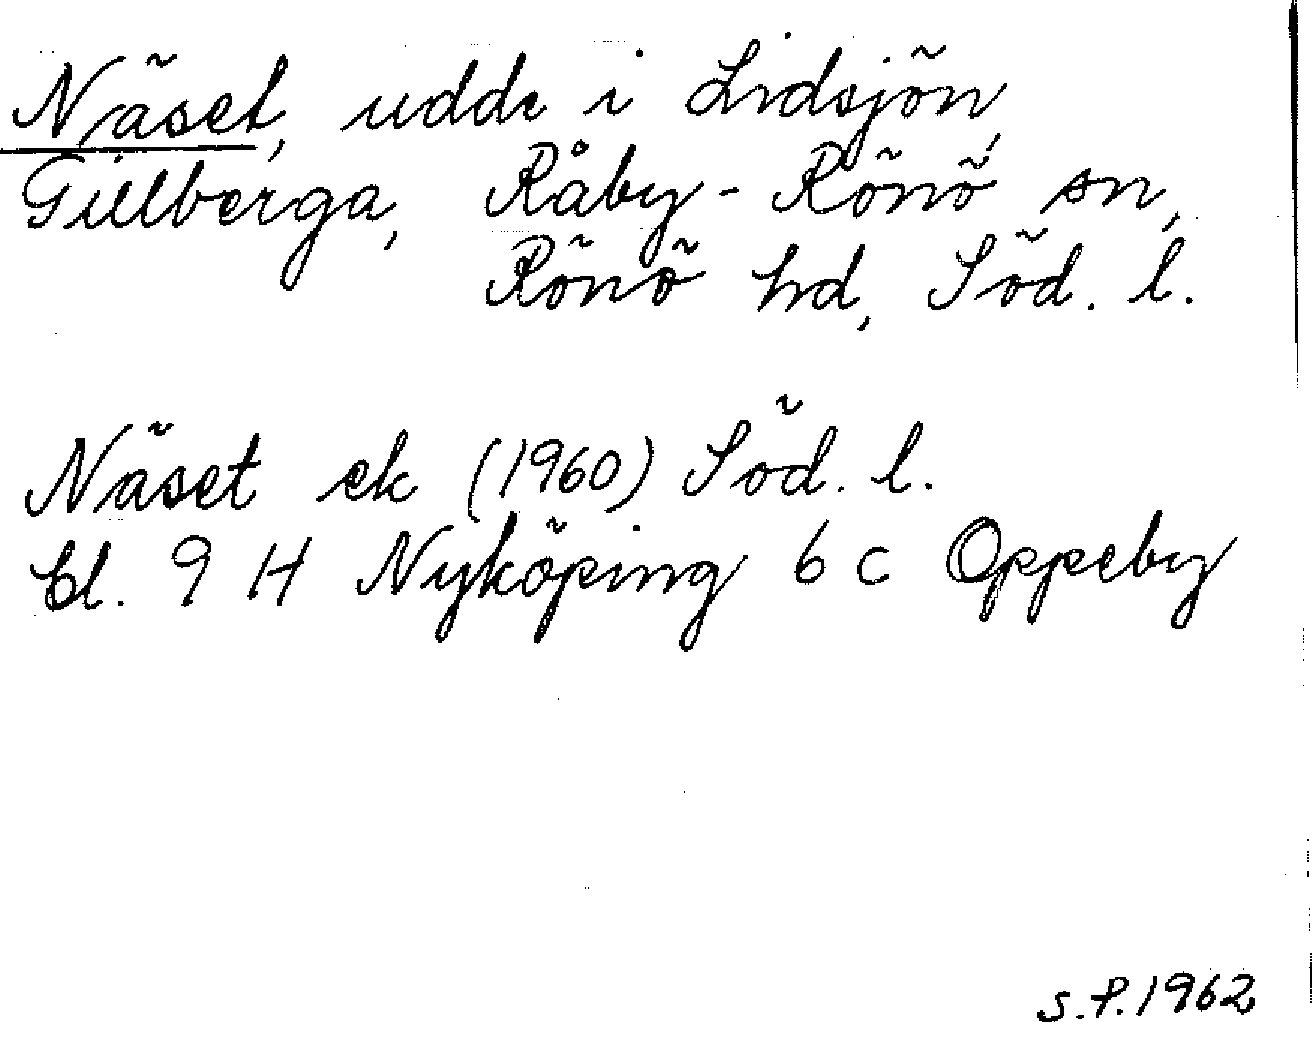 Näset, udde i Lidsjön,
Gillberga, Råby-Rönö sn,
Rönö hd, Söd. l.
Näset ek (1960) Söd. l.
bl. 9 H Nyköping 6 c Oppeby
S.P. 1962